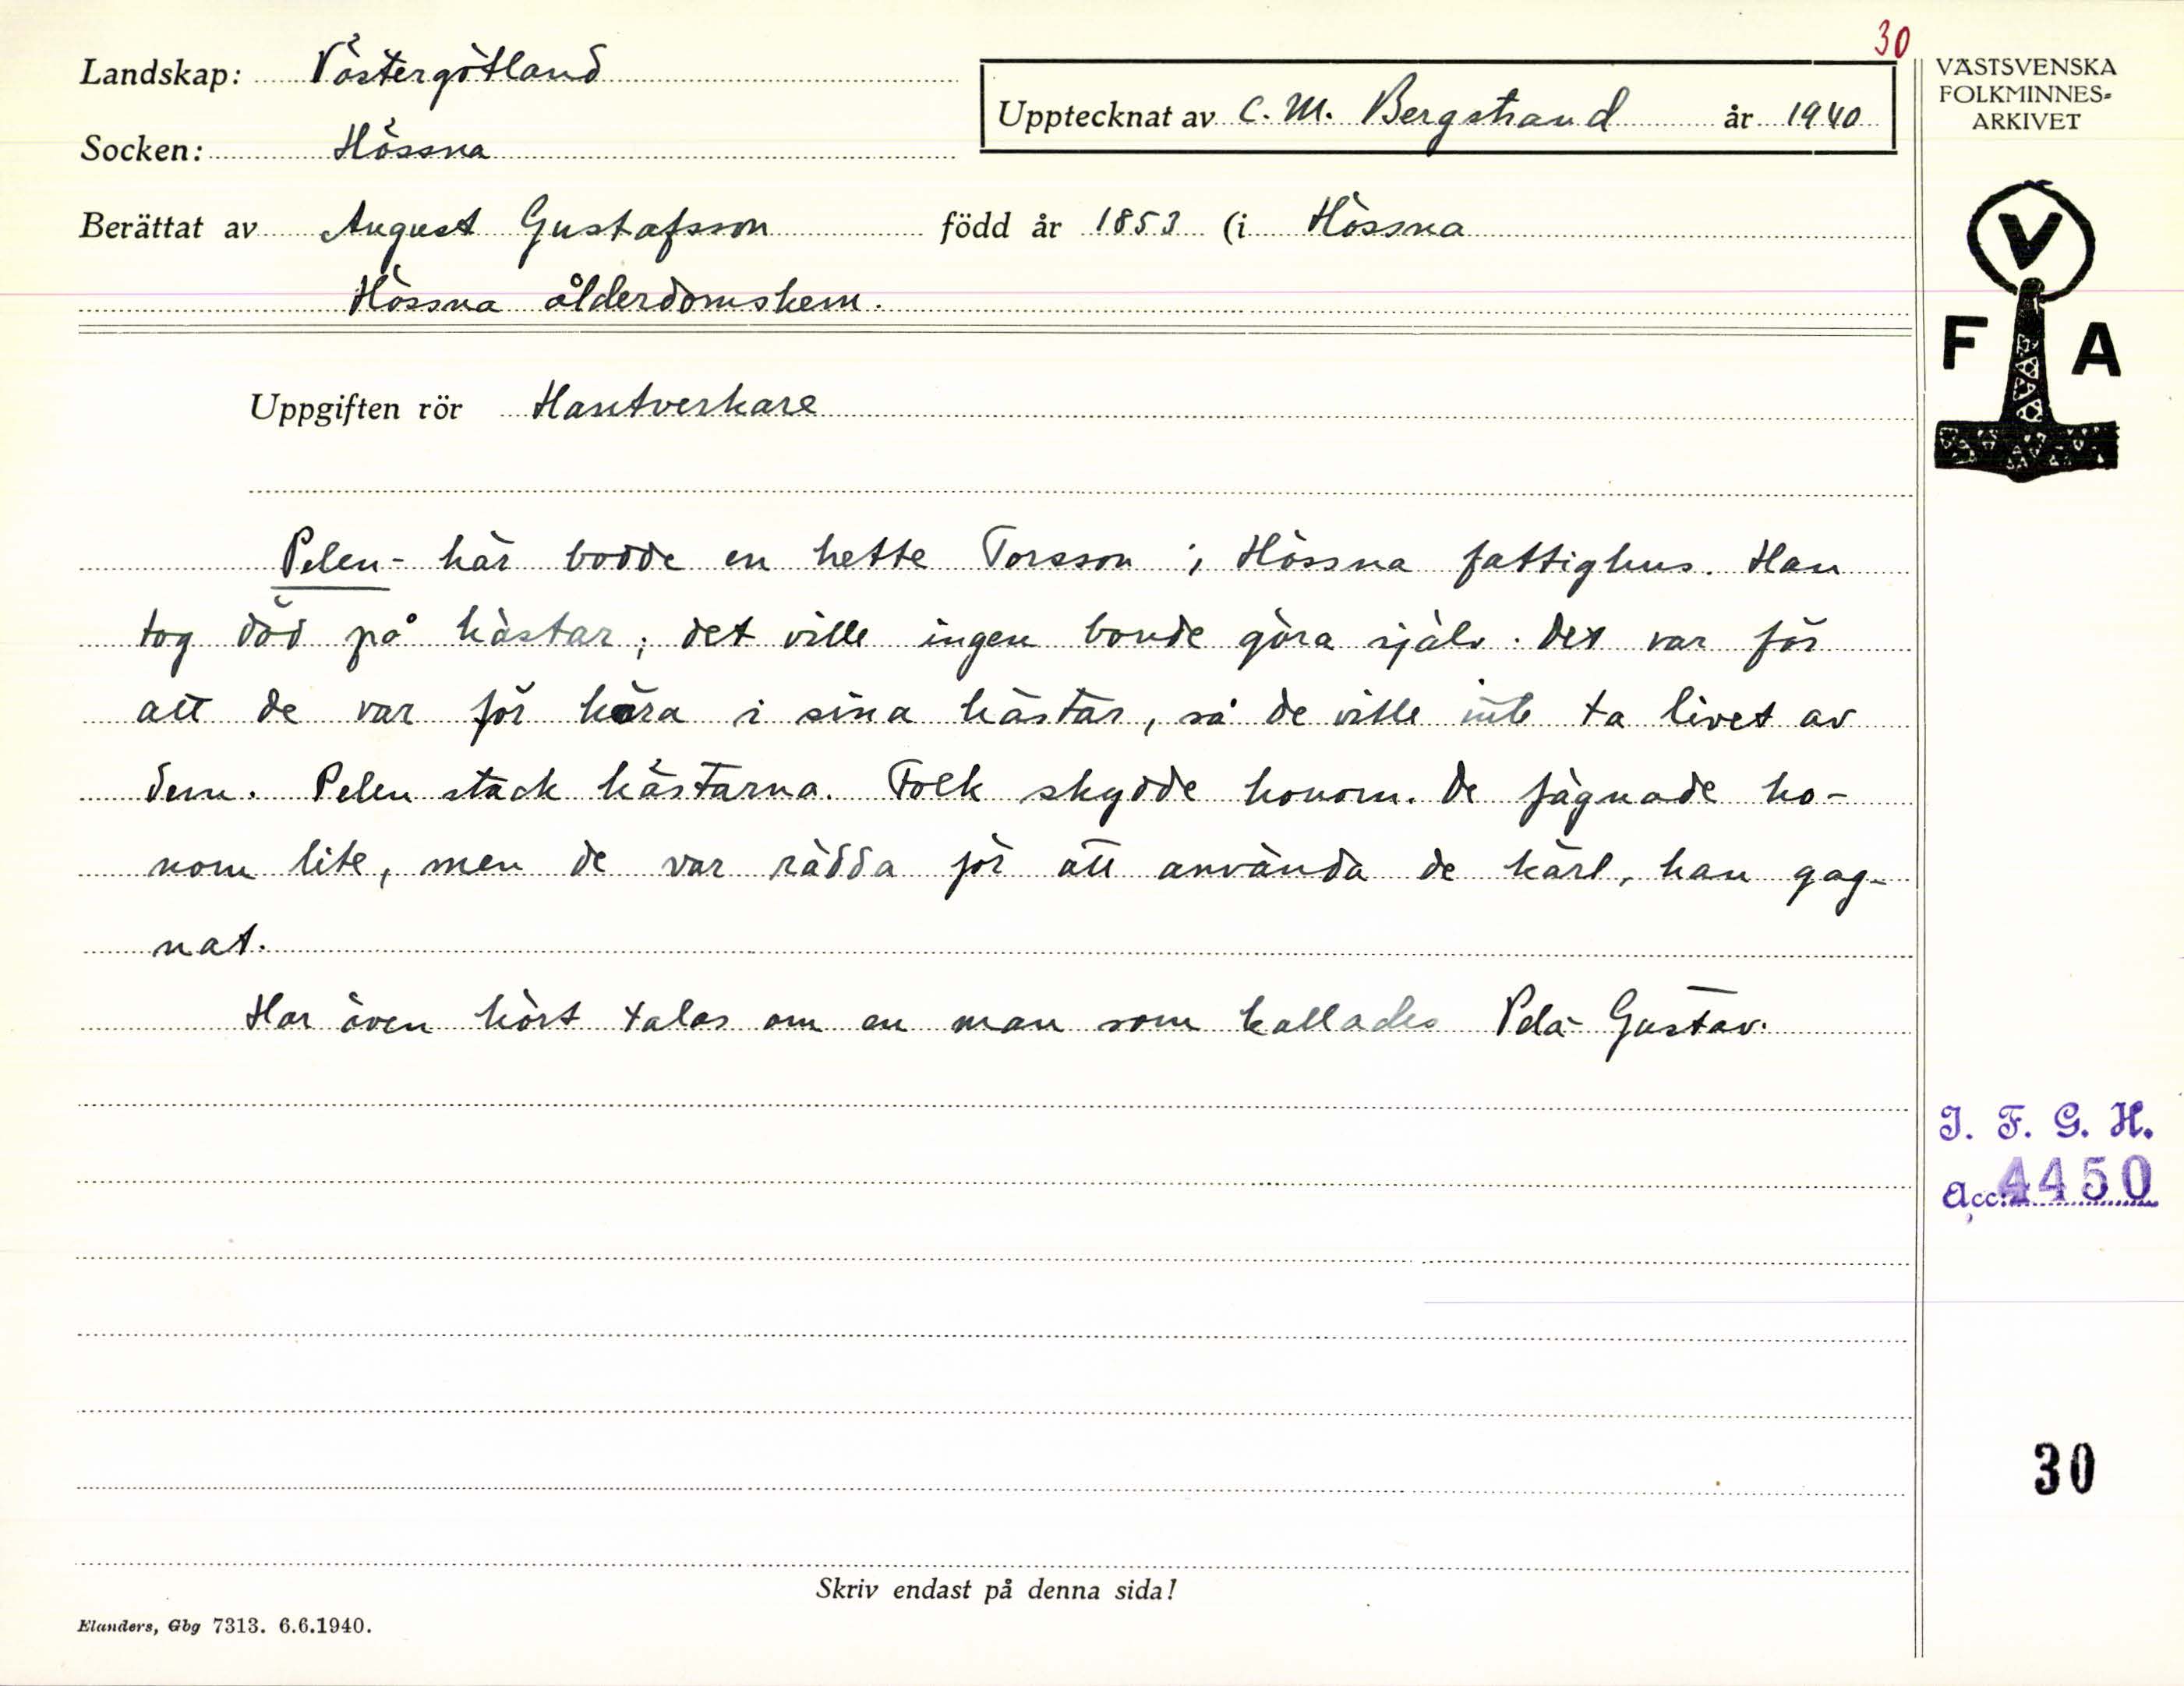 30
Landskap: Västergötland
Upptecknat av C. M. Bergstrand år 1940
Socken: Hössna
Berättat av August Gustafsson född år 1853 (i Hössna
Hössna ålderdomshem.
Uppgiften rör Hantverkare
Pelen- här bodde en hette Torsson i Hössna fattighus. Han
tog död på hästar; det ville ingen bonde göra själv. Det var för
att de var för kära i sina hästar, så de ville inte ta livet av
dem. Pelen stack hästarna. Folk skydde honom. De fägnade ho-
nom lite, men de var rädda för att använda de kärl, han gag-
nat.
Har även hört talas om en man som kallades Pela-Gustav.
Skriv endast på denna sida!
Elanders, Gbg 7313. 6.6.1940.
VÄSTSVENSKA
FOLKMINNES-
ARKIVET
V
F A
I. F. G. H.
Acc: 4450
30